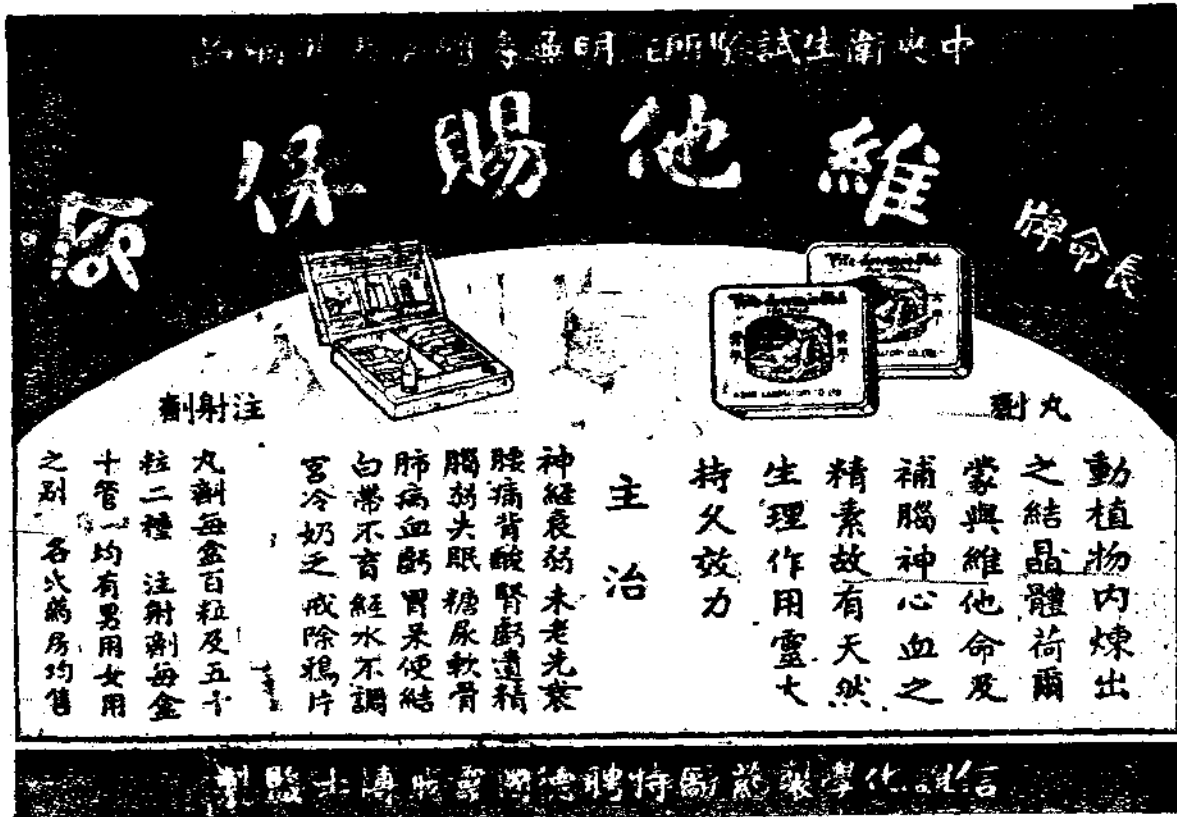 中央衛生試驗所証明
維他賜保命
長命牌
丸劑
動植物內煉出
之結晶體荷爾
蒙與維他命及
補腦神心血之
精素故有天然
生理作用靈大
持久效力
主治
神經衰弱未老先衰
腰痛背酸腎虧遺精
腦弱失眠糖尿軟骨
肺病血虧胃呆便結
白帶不育經水不調
宮冷奶乏戒除鴉片
注射劑
丸劑每盒百粒及五十
粒二種 注射劑每盒
十管一均有男用女用
之別 各大藥房均售
信誼化學製藥廠特聘德國醫藥博士監製